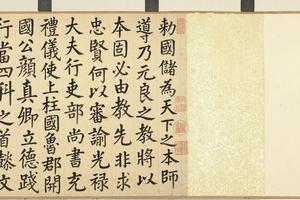 勑國儲為天下之本師
導乃元良之教將以
本固必由教先非求
忠賢何以審諭光祿
大夫行吏部尚書充
禮儀使上柱國魯郡開
國公顏真卿立德踐
行當四科之首懿文